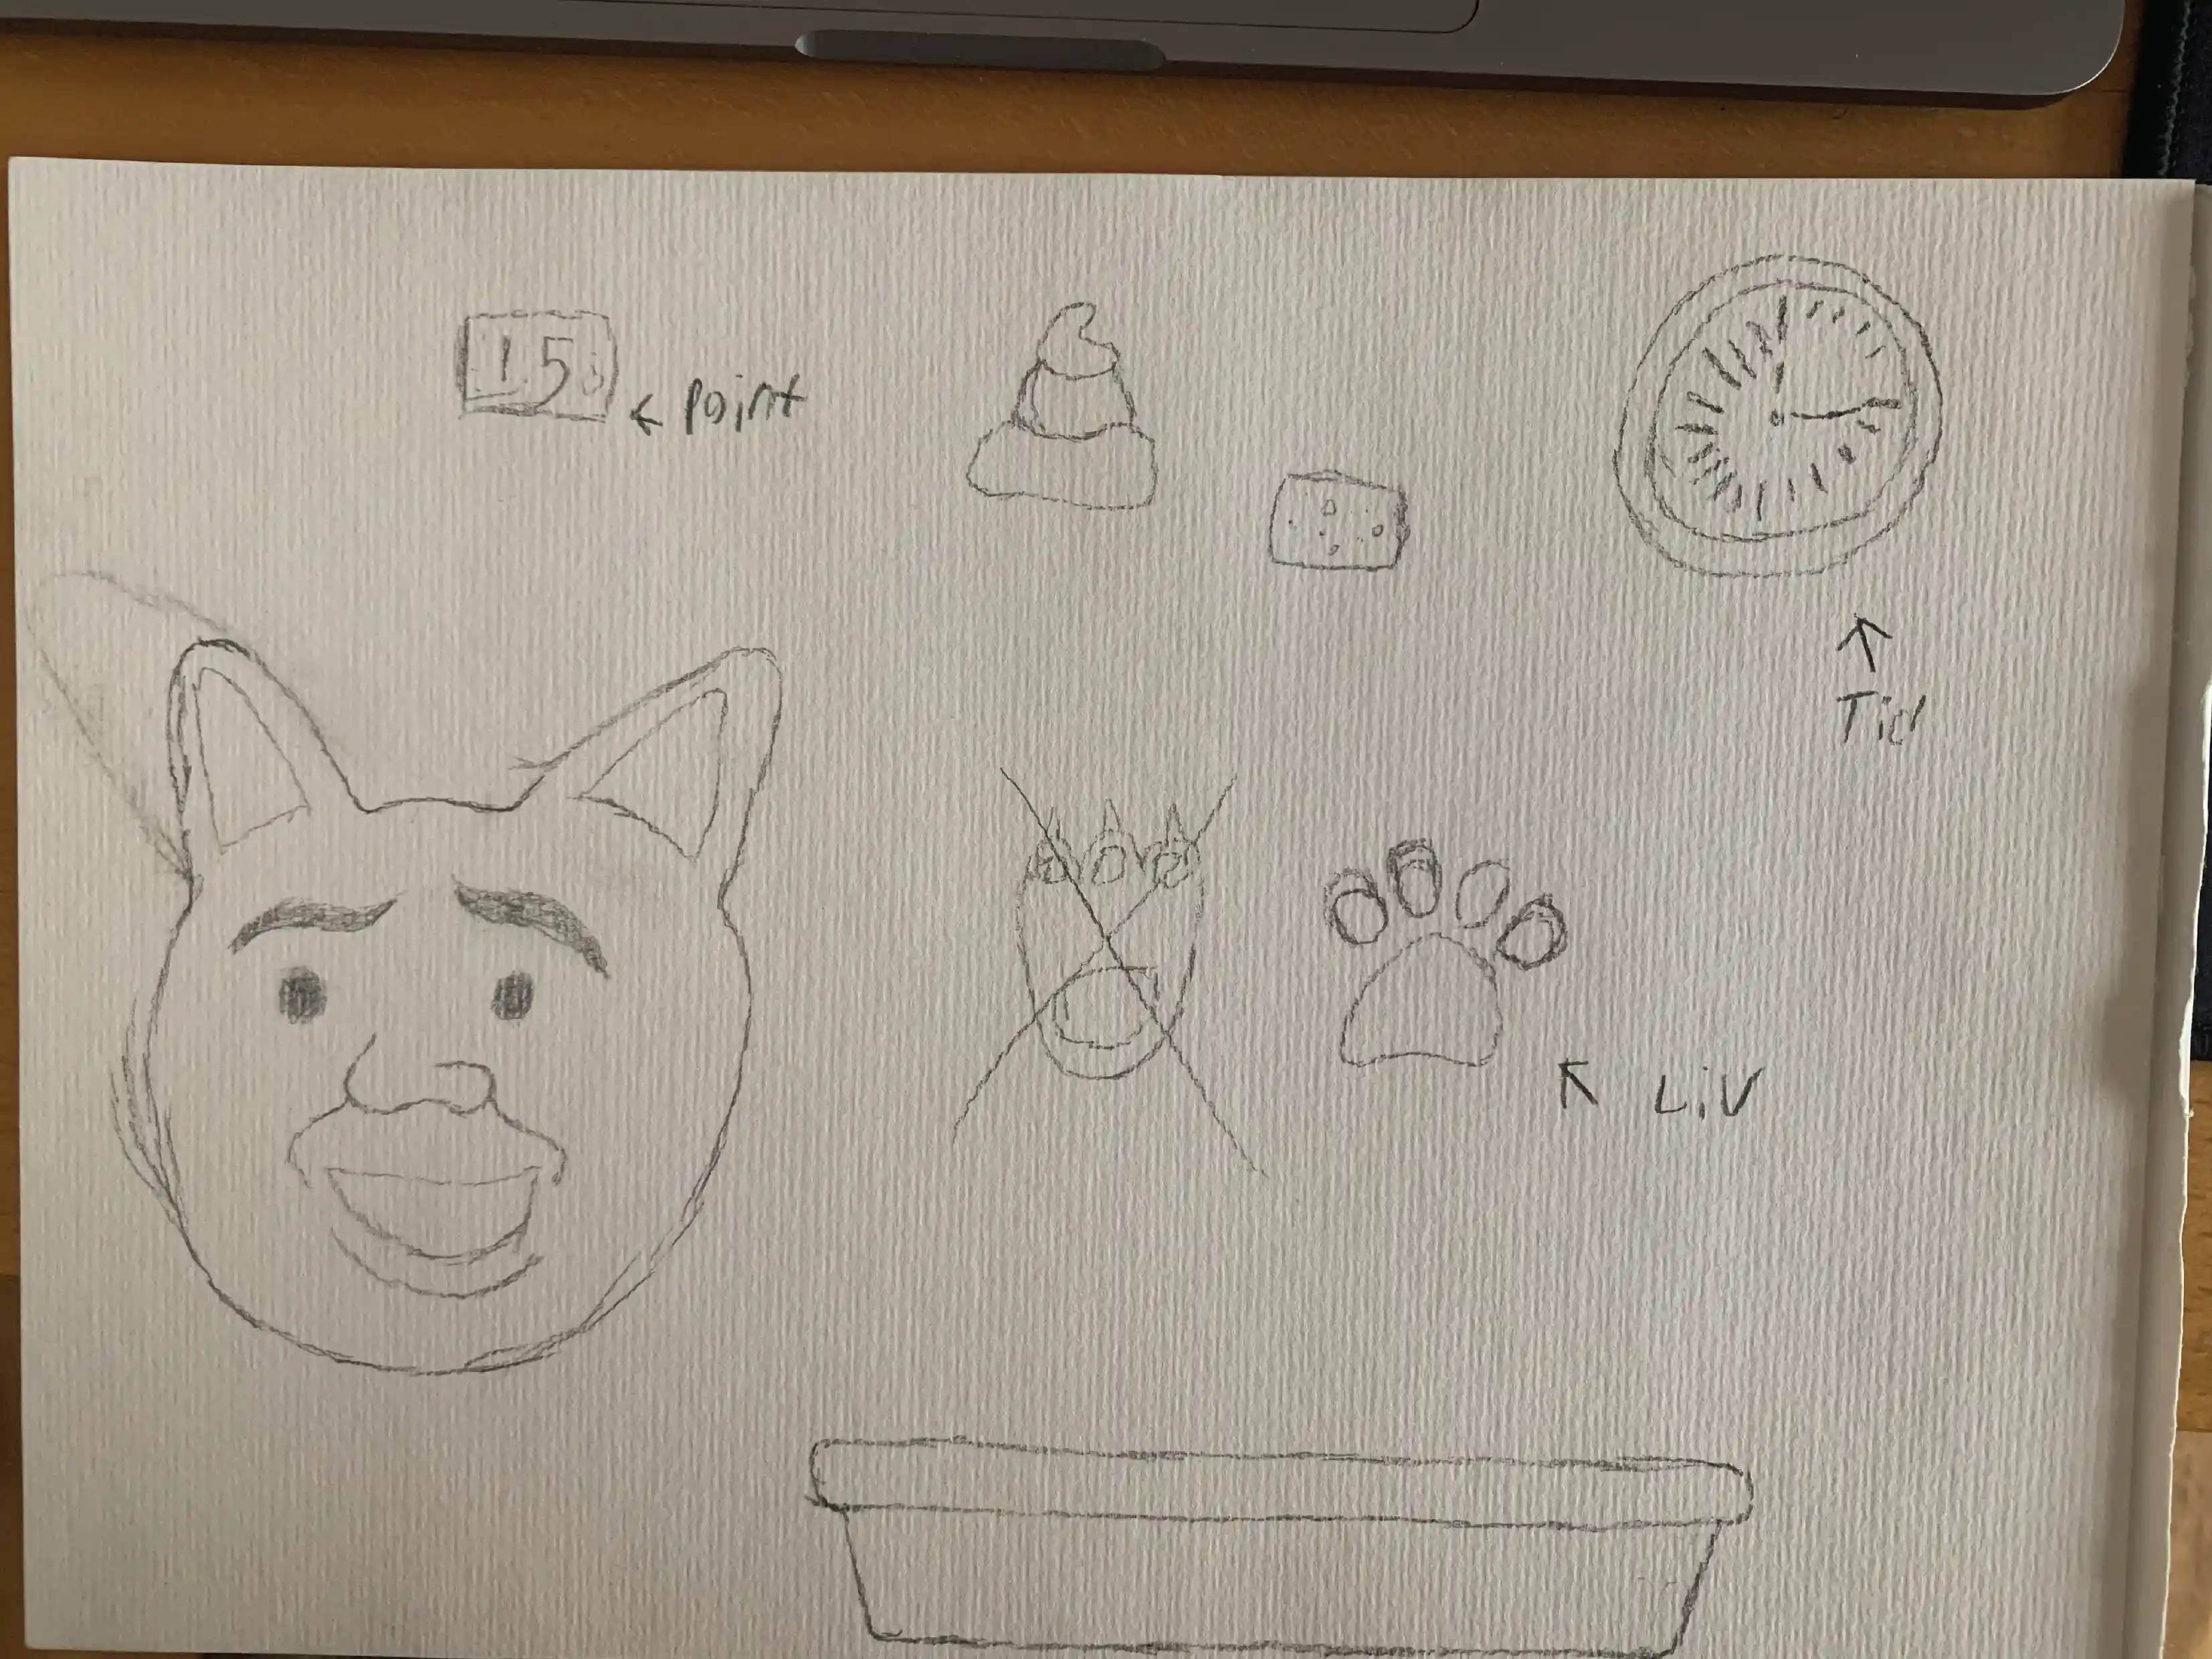 15
← Point
↑
Tid
↖ Liv